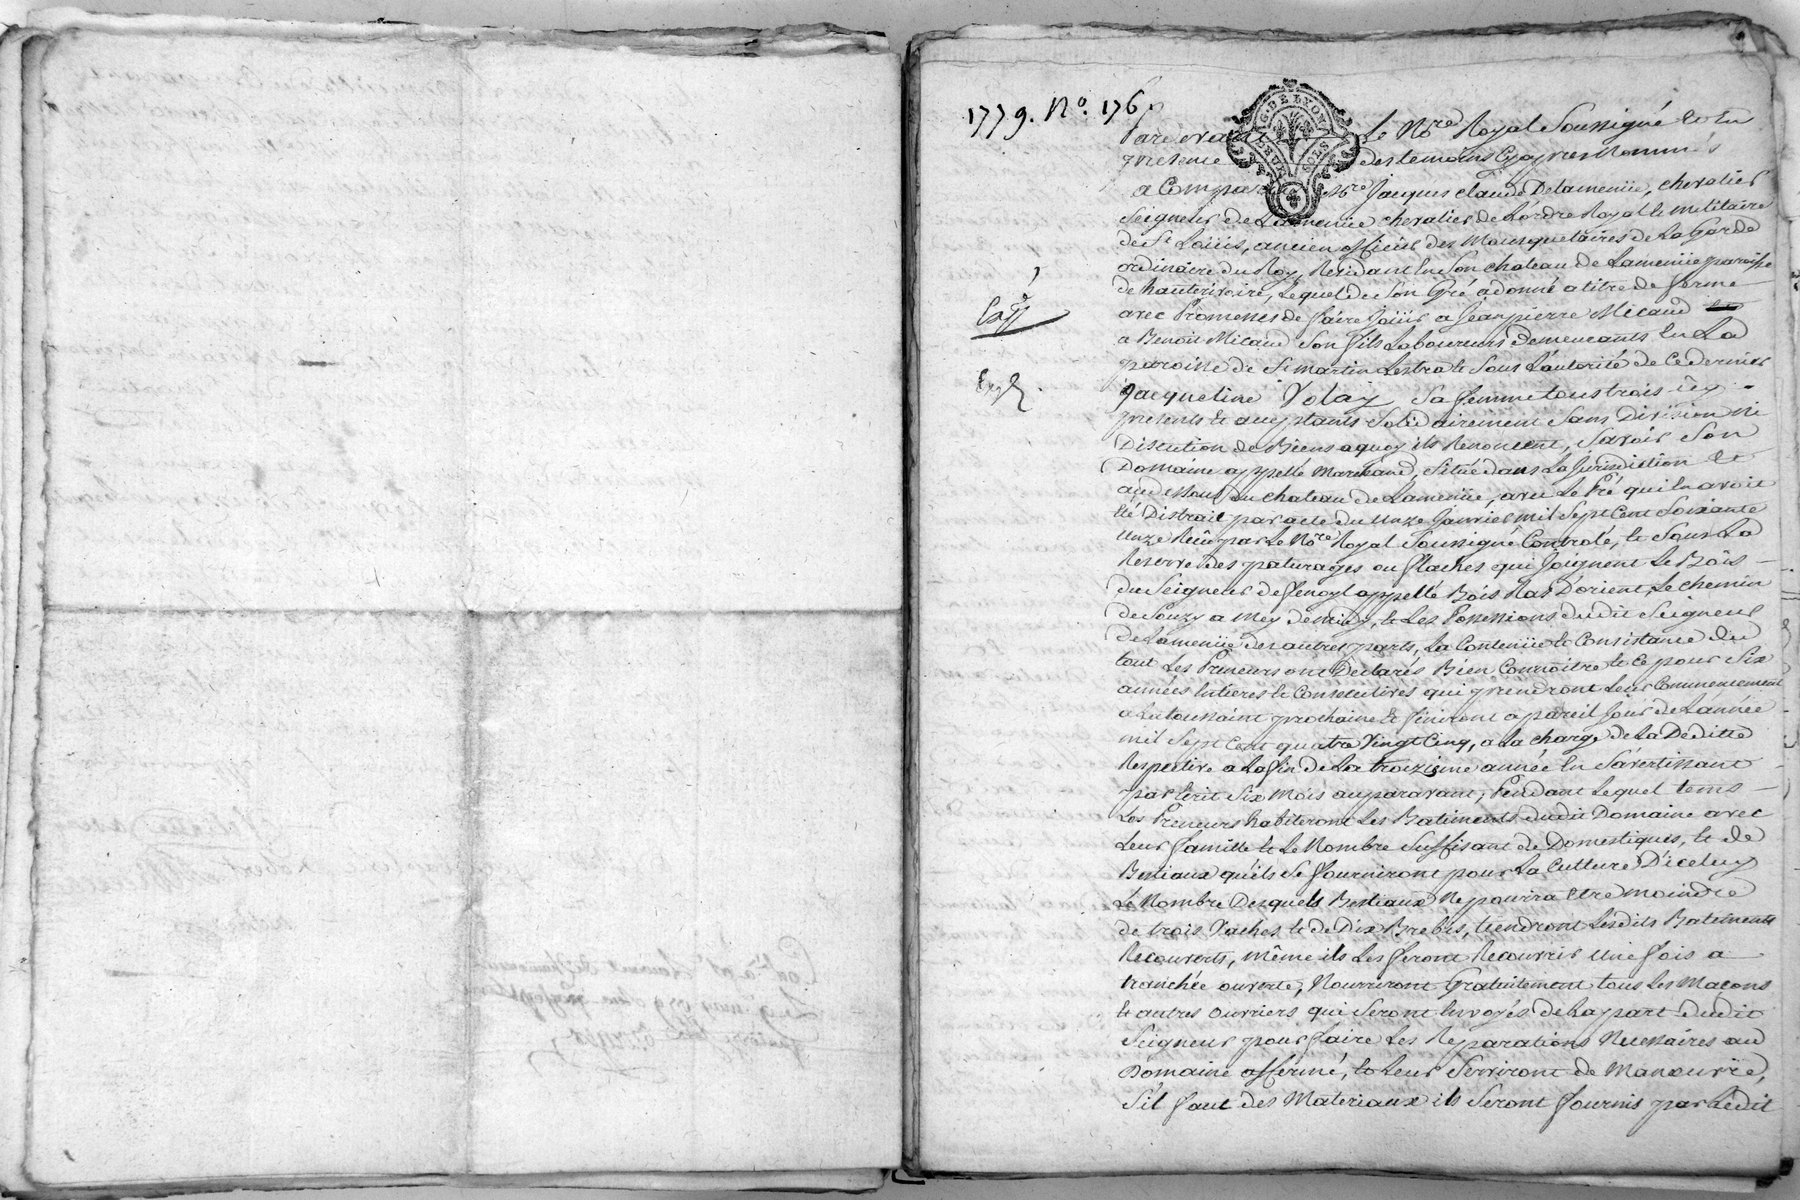 1779. No. 176
G. DE LYON
DEUX SOLS
Pardevant Le Nre Royal Soussigné et En
presence des temoins Cyapres Nommés
a Comparu Mre Jacques Claude Delameniie, chevalier
Seigneur de Lameniie chevalier de L'ordre Royal et militaire
de St Loüis, ancien officier des Mousquetaires de La Garde
ordinaire du Roy, Residant En Son chateau de Lameniie paroisse
de hauterivoire, Lequel de Son Gré a donné a titre de ferme
avec Promesses de faire Joüir a Jeanpierre Micaud
a Benoit Micaud Son fils Laboureurs demeurants En La
paroisse de St martin Lestra et Sous L'autorité de Ce dernier
Jacqueline Volay Sa femme tous trois icy
presents et acceptants Solidairement Sans Division ni
Discution de Biens aquoy ils Renoncent, Savoir Son
Domaine appellé Marchand, Situé dans La Jurisdiction et
au dessous du chateau de Lameniie, avec Le Pré qui En avoit
Eté Distrait par acte du unze Janvier mil Sept Cent Soixante
unze Reçû par Le Nre Royal Soussigné Controlé, et Sous La
Reserve des paturages ou flaches qui Joignent Le Bois
du Seigneur de fenoyl appellé Bois Ras D'orient, Le chemin
de Souzy a Mey de midy, et Les Possessions dudit Seigneur
de Lameniie des autres parts, La Conteniie et Consistance du
tout Les Preneurs ont Declarés Bien Connoitre et Ce pour Six
années Entieres et Consecutives qui prendront Leur Commencement
a La toussaint prochaine et finiront a pareil Jour de L'année
mil Sept Cent quatre Vingt Cinq, a La charge de La Deditte
Respective a La fin de La troizieme année En S'avertissant
par Ecrit Six Mois auparavant, Pendant Lequel tems
Les Preneurs habiteront Les Batiments dudit Domaine avec
Leur famille et Le Nombre Suffisant de Domestiques, et de
Bestiaux qu'ils Se fourniront pour La Culture D'iceluy
Le Nombre Desquels Bestiaux Ne pourra Etre moindre
de trois Vaches et de Dix Brebis, tiendront Lesdits Batiments
Recouverts, même ils Les feront Recouvrir Une fois a
tranchée ouverte, Nourriront Gratuitement tous Les Maçons
et autres ouvriers qui Seront Envoyés de La part dudit
Seigneur pour faire Les Reparations Necessaires au
Domaine affermé, et Leur Serviront de Manoeuvre,
S'il faut des Materiaux ils Seront fournis par Ledit